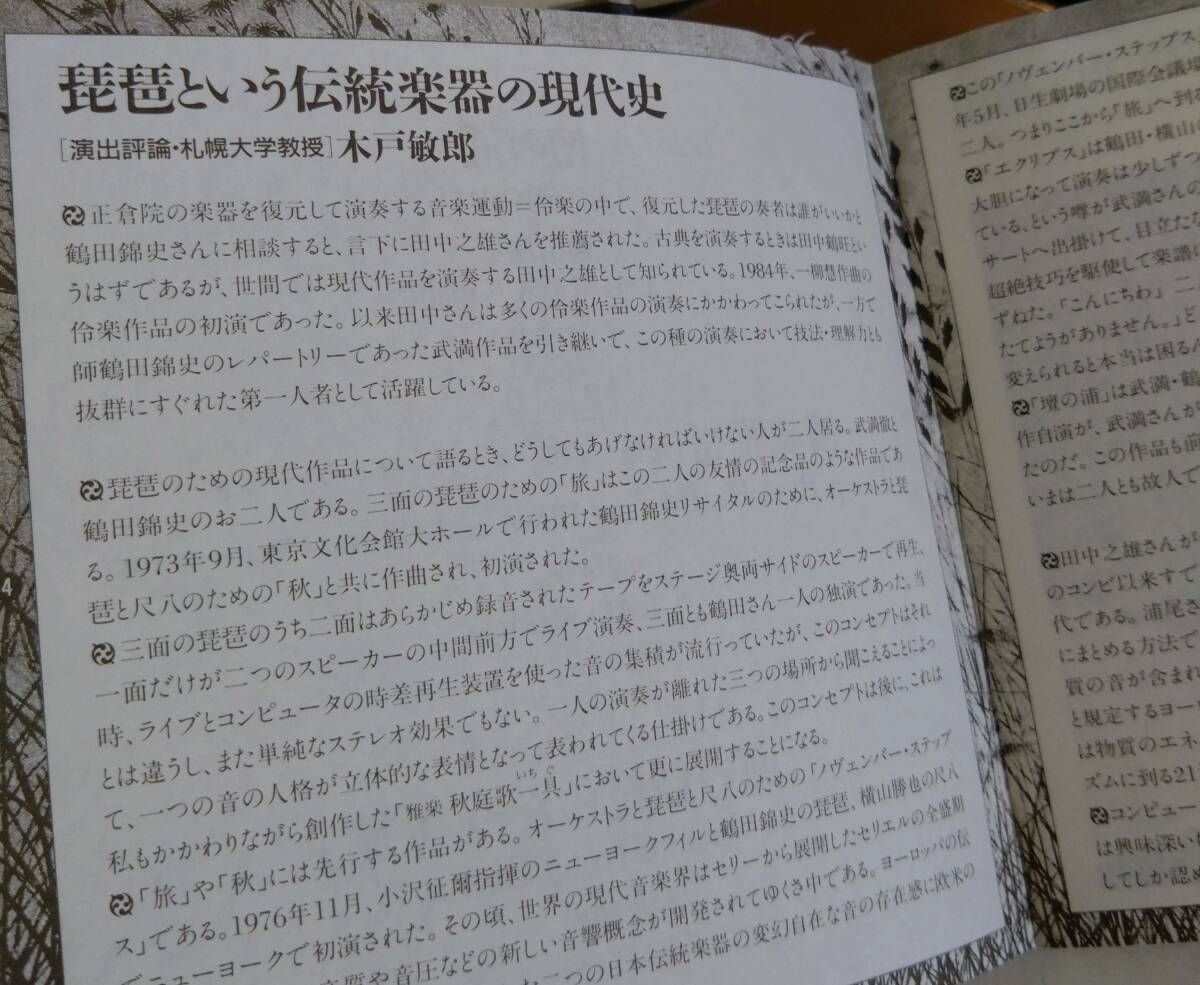 琵琶という伝統楽器の現代史
[演出評論・札幌大学教授]木戸敏郎
正倉院の楽器を復元して演奏する音楽運動=伶楽の中で、復元した琵琶の奏者は誰がいいかと
鶴田錦史さんに相談すると、言下に田中之雄さんを推薦された。古典を演奏するときは田中鶴旺とい
うはずであるが、世間では現代作品を演奏する田中之雄として知られている。1984年、一柳慧作曲の
伶楽作品の初演であった。以来田中さんは多くの伶楽作品の演奏にかかわってこられたが、一方で
師鶴田錦史のレパートリーであった武満作品を引き継いで、この種の演奏において技法・理解力とも
抜群にすぐれた第一人者として活躍している。
琵琶のための現代作品について語るとき、どうしてもあげなければいけない人が二人居る。武満徹と
鶴田錦史のお二人である。三面の琵琶のための「旅」はこの二人の友情の記念品のような作品であ
る。1973年9月、東京文化会館大ホールで行われた鶴田錦史リサイタルのために、オーケストラと琵
琶と尺八のための「秋」と共に作曲され、初演された。
三面の琵琶のうち二面はあらかじめ録音されたテープをステージ奥両サイドのスピーカーで再生、
一面だけが二つのスピーカーの中間前方でライブ演奏、三面とも鶴田さん一人の独演であった。当
時、ライブとコンピュータの時差再生装置を使った音の集積が流行っていたが、このコンセプトはそれ
とは違うし、また単純なステレオ効果でもない。一人の演奏が離れた三つの場所から聞こえることによっ
て、一つの音の人格が立体的な表情となって表われてくる仕掛けである。このコンセプトは後に、これは
私もかかわりながら創作した「雅楽 秋庭歌一具」において更に展開することになる。
いちぐ
「旅」や「秋」には先行する作品がある。オーケストラと琵琶と尺八のための「ノヴェンバー・ステップ
ス」である。1976年11月、小沢征爾指揮のニューヨークフィルと鶴田錦史の琵琶、横山勝也の尺八
でニューヨークで初演された。その頃、世界の現代音楽界はセリーから展開したセリエルの全盛期
音質や音圧などの新しい音響概念が開発されてゆくさ中である。ヨーロッパの伝
な二つの日本伝統楽器の変幻自在な音の存在感に欧米の
4
この「ノヴェンバー・ステップス
年5月、日生劇場の国際会議場
二人。つまりここから「旅」へ到る
「エクリプス」は鶴田・横山
大胆になって演奏は少しずつ
ている、という噂が武満さんの
サートへ出掛けて、目立たな
超絶技巧を駆使して楽譜に
ずねた。「こんにちわ」 二
たてようがありません。」ど
変えられると本当は困るん
「壇の浦」は武満・鶴
作自演が、武満さんが
たのだ。この作品も前
いまは二人とも故人で
田中之雄さんが
のコンビ以来すで
代である。浦尾さ
にまとめる方法で
質の音が含まれ
と規定するヨー
は物質のエネ
ズムに到る21
コンピュー
は興味深い
してしか認め